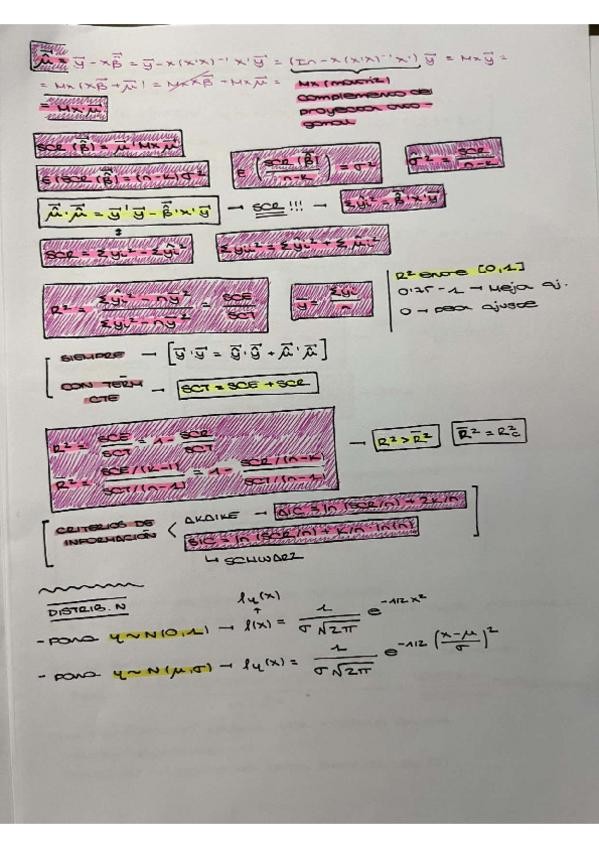 μ̂ = ȳ - xβ̂ = ȳ - x(x'x)⁻¹ x'ȳ = (In - x(x'x)⁻¹x') ȳ = Mxȳ =
= Mx (xβ + μ̄) = Mxxβ + Mxμ̄ =
Mx (matriz)
complemento de
proyector orto-
gonal
= Mxμ
SCR (β̂) = μ'Mxμ
E(SCR(β̂)) = (n-k)σ²
E (SCR(β̂) / n-k) = σ²
σ̂² = SCR / n-k
μ̂'μ̂ = ȳ'ȳ - β̂'x'ȳ → SCR !!! → Σŷi² = β̂'x'ȳ
SCR = Σyi² - Σŷi²
Σyi² = Σŷi² + Σμ̂i²
R² = Σŷi² - nȳ² / Σyi² - nȳ² = SCE / SCT
ȳ = Σyi / n
R² entre [0,1]
0'75 - 1 → Mejor aj.
0 → peor ajuste
SIEMPRE → [ȳ'ȳ = ŷ'ŷ + μ̂'μ̂]
CON TÉRM
CTE → SCT = SCE + SCR
R² = SCE / SCT = 1 - SCR / SCT
R̄² = SCE/(k-1) / SCT/(n-1) = 1 - SCR/(n-k) / SCT/(n-1)
→ R² > R̄²
R̄² = R²c
CRITERIOS DE
INFORMACIÓN
AKAIKE → AIC = ln (SCR/n) + 2k/n
SIC = ln (SCR/n) + k/n · ln(n)
↳ SCHWARZ
DISTRIB. N
fy(x)
- para y ~ N(0,1) → f(x) = 1 / σ√2π e^-1/2 x²
- para y ~ N(μ,σ) → fy(x) = 1 / σ√2π e^-1/2 (x-μ / σ)²